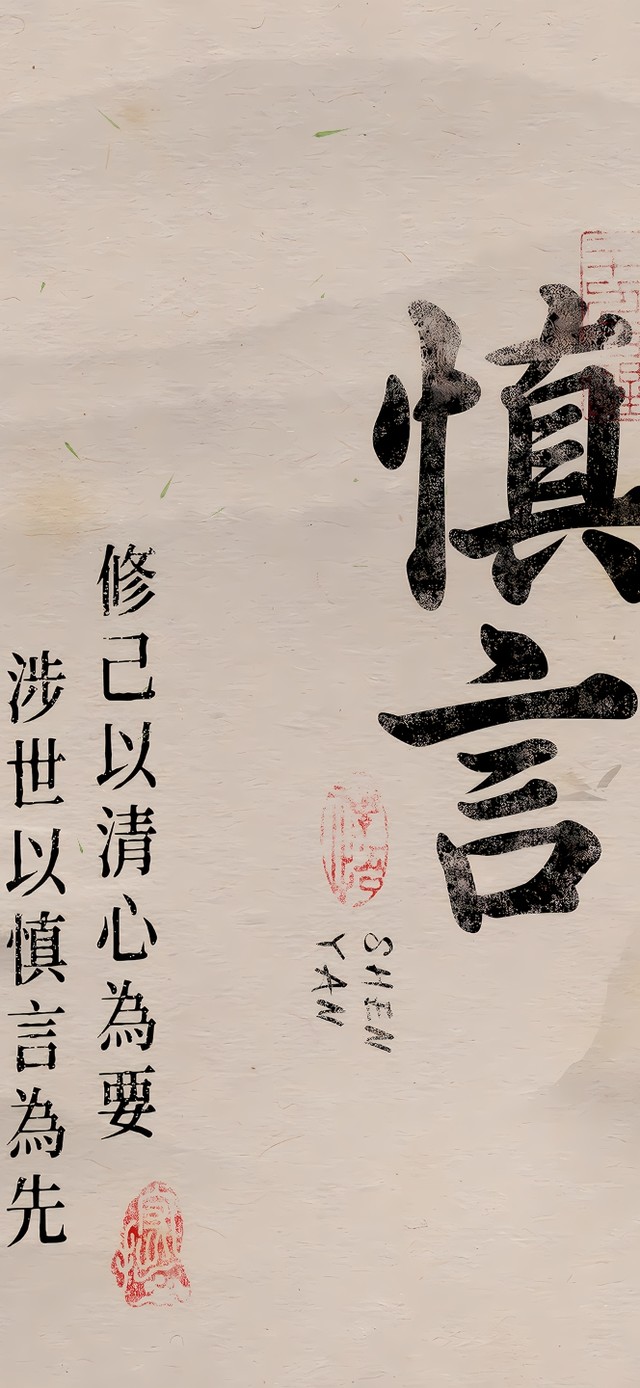 慎言
SHEN
YAN
修己以清心為要
涉世以慎言為先